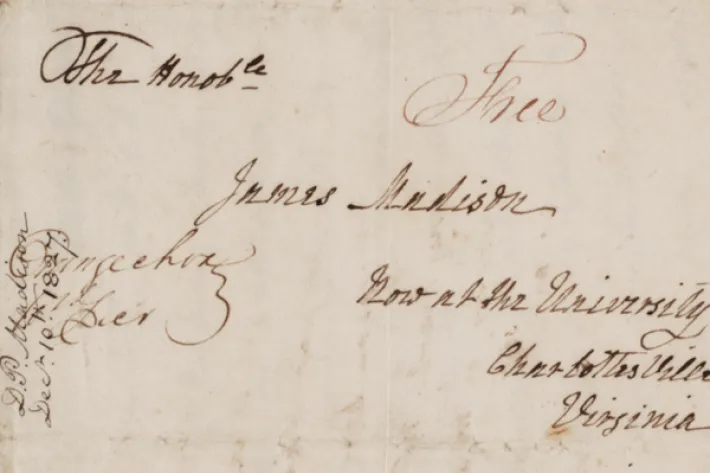 The Honoble
Free
James Madison
Orange
Now at the University
CharlottesVille
Virginia
D. P. Madison
Decr 10th 1827